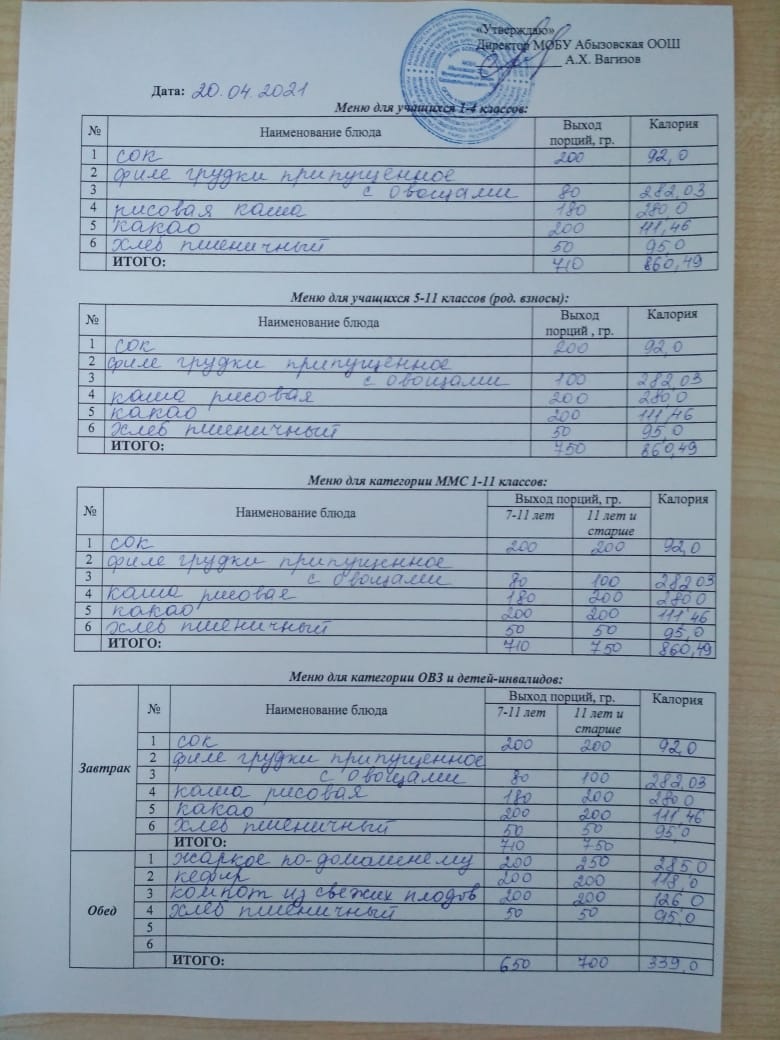 «Утверждаю»
Директор МОБУ Абызовская ООШ
А.Х. Вагизов
Дата: 20.04.2021
Меню для учащихся 1-4 классов:
№ Наименование блюда Выход порций, гр. Калория
1 сок 200 92,0
2 филе грудки припущенное
3 с овощами 80 282,03
4 рисовая каша 180 280,0
5 какао 200 111,46
6 хлеб пшеничный 50 95,0
ИТОГО: 710 860,49
Меню для учащихся 5-11 классов (род. взносы):
№ Наименование блюда Выход порций , гр. Калория
1 сок 200 92,0
2 филе грудки припущенное
3 с овощами 100 282,03
4 каша рисовая 200 280,0
5 какао 200 111,46
6 хлеб пшеничный 50 95,0
ИТОГО: 750 860,49
Меню для категории ММС 1-11 классов:
№ Наименование блюда Выход порций, гр. Калория
7-11 лет 11 лет и старше
1 сок 200 200 92,0
2 филе грудки припущенное
3 с овощами 80 100 282,03
4 каша рисовая 180 200 280,0
5 какао 200 200 111,46
6 хлеб пшеничный 50 50 95,0
ИТОГО: 710 750 860,49
Меню для категории ОВЗ и детей-инвалидов:
№ Наименование блюда Выход порций, гр. Калория
7-11 лет 11 лет и старше
Завтрак
1 сок 200 200 92,0
2 филе грудки припущенное
3 с овощами 80 100 282,03
4 каша рисовая 180 200 280,0
5 какао 200 200 111,46
6 хлеб пшеничный 50 50 95,0
ИТОГО: 710 750
Обед
1 жаркое по-домашнему 200 250 285,0
2 кефир 200 200 118,0
3 компот из свежих плодов 200 200 126,0
4 хлеб пшеничный 50 50 95,0
5
6
ИТОГО: 650 700 339,0